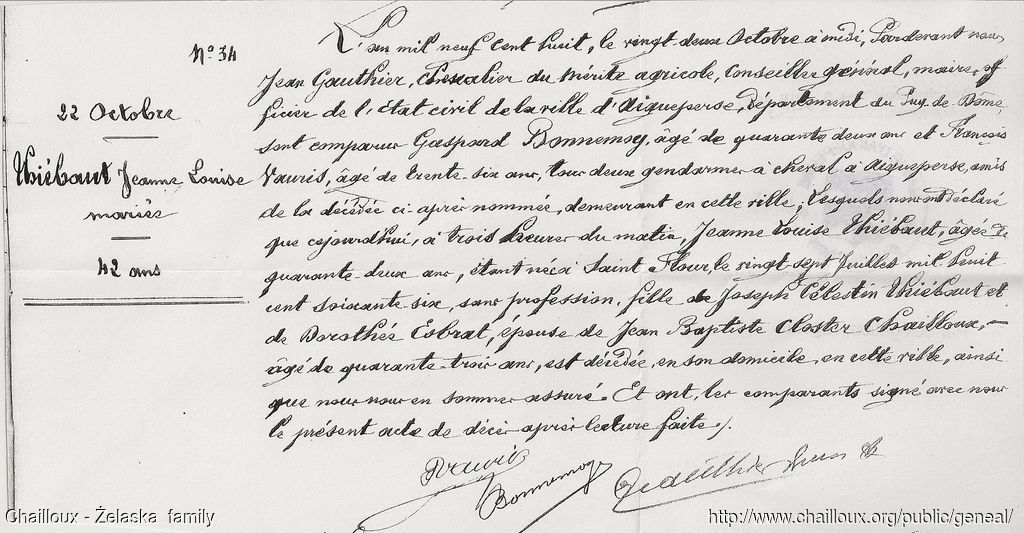 N° 34
22 Octobre
Thiébaut Jeanne Louise
mariée
42 ans
L'an mil neuf cent huit, le vingt-deux Octobre à midi, Pardevant nous
Jean Gauthier, Chevalier du Mérite agricole, Conseiller général, maire, of
ficier de l'Etat civil de la ville d'Aigueperse, Département du Puy-de-Dôme,
sont comparus Gaspard Bonnemoy, âgé de quarante deux ans et François
Vauris, âgé de trente-six ans, tous deux gendarmes à cheval à Aigueperse, amis
de la décédée ci-après nommée, demeurant en cette ville; Lesquels nous ont déclaré
que cejourdhui, à trois heures du matin, Jeanne Louise Thiébaut, âgée de
quarante-deux ans, étant née à Saint Flour, le vingt-sept Juillet mil huit
cent soixante-six, sans profession, fille de Joseph Célestin Thiébaut et
de Dorothée Esbrat, épouse de Jean Baptiste Closter Chailloux,
âgé de quarante-trois ans, est décédée, en son domicile, en cette ville, ainsi
que nous nous en sommes assuré. Et ont, les comparants signé avec nous
le présent acte de décès après lecture faite ./.
Vauris
Bonnemoy
Gauthier
Chailloux - Żelaska family
http://www.chailloux.org/public/geneal/